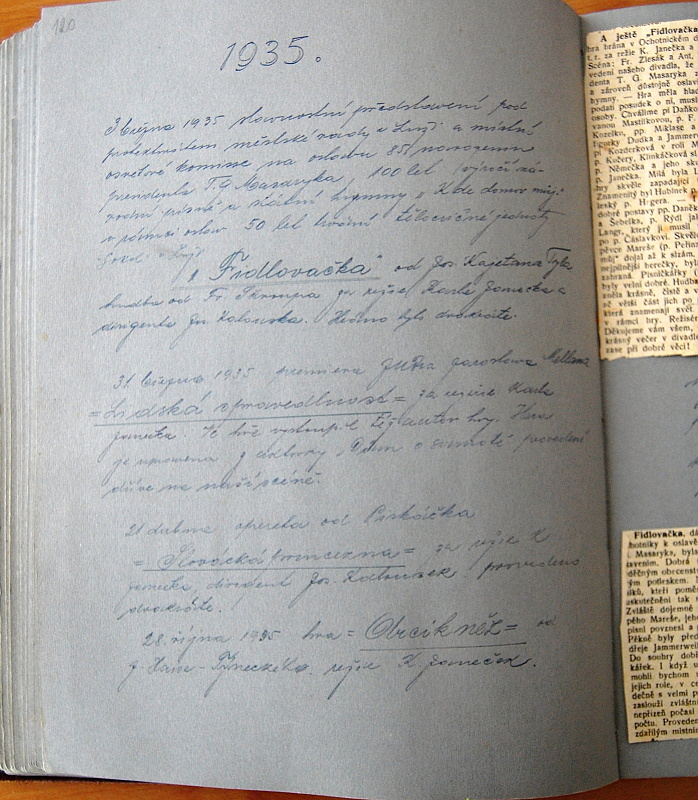 120
1935.
března 1935 slavnostní představení pod
protektorátem městské rady a místní
osvětové komise na oslavu 85. narozenin
presidenta T. G. Masaryka, 100 let výročí ná-
rodní písně a státní hymny „Kde domov můj“
v rámci oslav 50 let trvání Tělocvičné jednoty
Sokol
„Fidlovačka“ od Jos. Kajetana Tyla
hudba od Fr. Škroupa za režie Karla Janečka a
dirigenta Jos. Kalouska. Hráno bylo dvakráte.
31. března 1935 premiera Jaroslava
=Lidská spravedlnost= za režie Karla
Janečka. Ve hře vystoupil též autor hry. Hra
je upomena z aktovky o samotě provedené
dříve na naší scéně.
21 dubna opereta od Piskáčka
=Slovácká princezna= za režie K.
Janečka, dirigent Jos. Kalousek. provedeno
dvakráte.
28. října 1935 hra = než= od
režie K. Janeček.
A ještě „Fidlovačka
hra brána v Ochotnickém d
t. r. za režie K. Janečka a
Scéna: Fr. Zlesák a Ant.
vedení našeho divadla, že
denta T. G. Masaryka
a zároveň důstojně oslavi
hymny. — Hra měla hlad
podati posudek o ní, muse
osoby. Chválíme pí Daňko
vanou Mastílkovou, p. F.
Kozelko, pp. Miklase a
figurky Dudka a Jammerw
pí Kozderková v roli M
p. Kučery, Klinkáčková sl
p. Němečka a jeho sku
p. Janečka. Milá byla L
hry skvěle zapadající
Znamenitý byl Hubínek p
český p. Hegera. —
dobré postavy pp. Daněk
a Šebelka, p. Rýdl jal
Lange, který jí musil
po p. Čáslavkovi. Skvělý
pěvce Mareše (p. Peřin
můj“ dojal až k slzám.
nejpilnější herečky, byl
zabraná. Písničkářky
byly velmi dobré. Hudb
zněla krásně, čistě a v
ač větší část jich po
která znamenají svět
v rámci hry. Režisér
Děkujeme vám všem,
krásný večer v divadle
zase při dobré věci!
Fidlovačka, dá
chotníky k oslavě
i. Masaryka, byla
tavením. Dobrá
děčným obecenstv
ým potleskem.
íků, kteří poměr
uskutečnění tak
Zvláště dojemně
pého Mareše, jeho
písní povznesl a
Pěkně byly před
dřeje Jammerweil
Do souhry dobře
kářek. I když
mohli bychom
jejich role, v ce
dečně s velmi p
zaslouží zvláštní
nepřízeň počasí
počtu. Proveden
zdařilým místnín